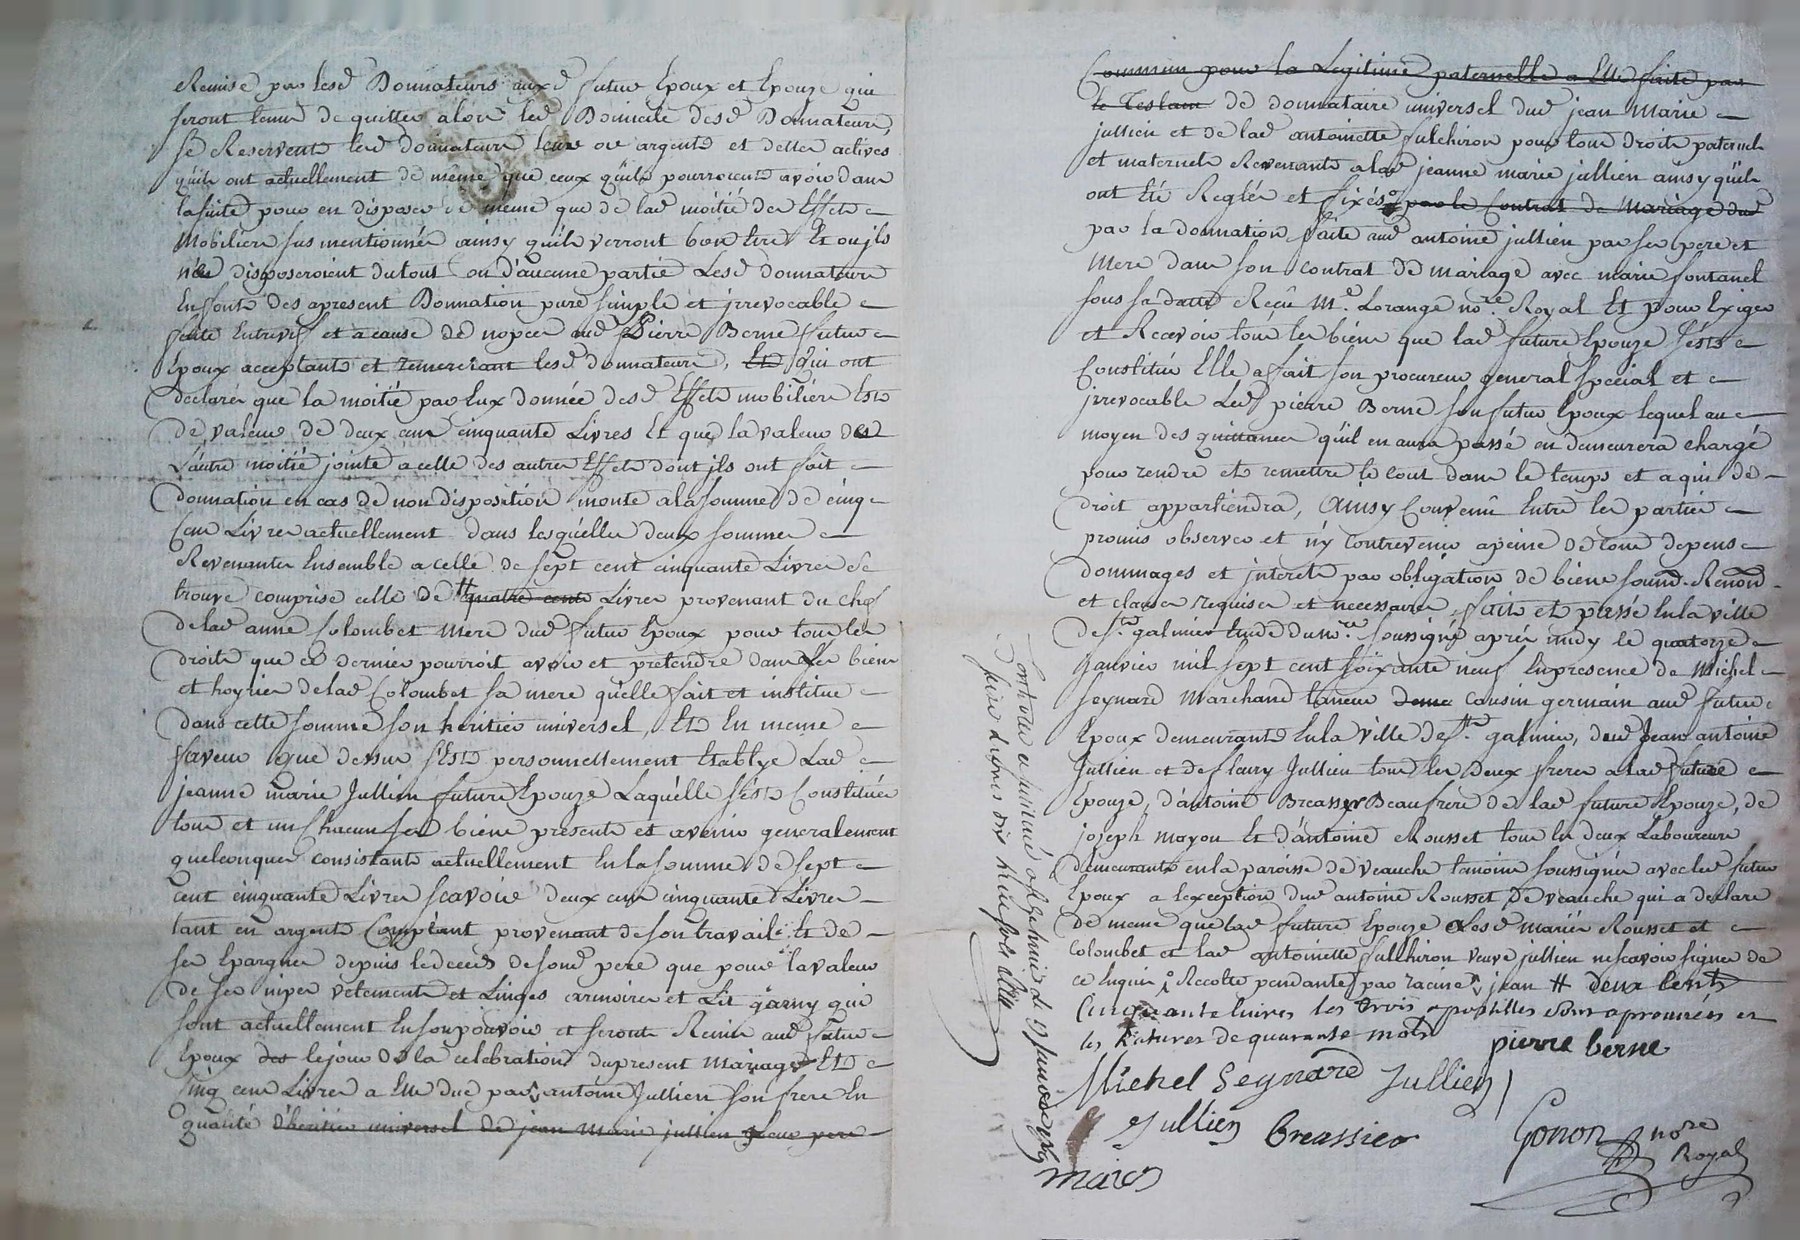 Remise par lesd Donnateurs auxd futur Epoux et Epouze qui
seront tenus de quitter alors led Domicile desd Donnateurs,
se Reservent lesd donnateurs leurs or argents et dettes actives
quils ont actuellement de même que ceux qu'ils pourroient avoir dans
la suitte pour en disposer de même que de lad moitié des Effets
Mobiliers sus mentionnés ainsy quils verront bon être Et ou ils
n'en disposeroient du tout ou d'aucune partie Lesd donnateurs
En font des apresent Donnation pure simple et irrevocable
faite Entrevifs et a cause de nopces aud Pierre Berne futur
Epoux acceptant et remerciant lesd donnateurs, Et qui ont
declarés que la moitié par Eux donnée desd Effets mobiliers Est
de valeur de deux cens cinquante Livres Et que la valeur de
L'autre moitié jointe a celle des autres Effets dont ils ont fait
donnation en cas de non disposition monte a la somme de cinq
Cens Livres actuellement dans lesquelles deux sommes
Revenantes Ensemble a celle de sept cent cinquante Livres se
trouve comprise celle de # quatre cents Livres provenant du chef
de lad anne Colombet Mere dud futur Epoux pour tous les
droits que ce dernier pourroit avoir et pretendre dans les biens
et hoyries de lad Colombet sa mere quelle fait et institue
dans cette somme son heritier universel, Et En meme
faveur que dessus s'Est personnellement Etablye Lad
jeanne marie Jullien future Epouze Laquelle s'est Constituée
tous et un Chacuns ses biens presents et avenir generalement
quelconques consistants actuellement En la somme de sept
cent cinquante Livres scavoir deux cens cinquante Livres
tant en argent Comptant provenant de son travail Et de
ses Epargnes depuis le deceds de sond pere que pour la valeur
de ses nipes vêtements et Linges armoires et Lit garny qui
sont actuellement En son pouvoir et seront Remis aud futur
Epoux des le jour de la celebration du present Mariage Et
Cinq cens Livres a Elle due par antoine Jullien son frere En
qualité d'heritier universel de jean Marie jullien leur pere
Commun pour la Legitime paternelle a Elle faite par
le Testam de donnataire universel dud jean Marie
jullien et de lad antoinette fulchiron pour tous droits paternels
et maternels Revenants a lad jeanne marie jullien ainsy quils
ont Eté Reglés et fixés par le Contrat de Mariage dud
par la donnation faite aud antoine jullien par ses pere et
Mere dans son contrat de mariage avec marie fontanel
sous sa datte Reçû Me. Lorange nore. Royal Et pour Exiger
et Recevoir tous les biens que lad future Epouze s'est
Constitués Elle a fait son procureur general special et
irrevocable Led pierre Berne son futur Epoux lequel au
moyen des quittances qu'il en aura passé en demeurera chargé
pour rendre et remettre le tout dans le temps et a qui de
droit appartiendra, Ainsy Convenû Entre les parties
promis observer et n'y contrevenir a peine de tous depens
dommages et interets par obligation de biens soumd. Renond.
et clauses requises et necessaires, fait et passé En la ville
de St. galmier Etude du nore. soussigné après midy le quatorze
janvier mil sept cent soixante neuf En presence de Michel
Seynard Marchand taneur cousin germain aud futur
Epoux demeurant En la ville de St. galmier, de Jean antoine
Jullien et de fleury Jullien tous les deux freres a lad future
Epouze, d'antoine Breassier Beaufrere de lad future Epouze, de
joseph Mayou Et d'antoine Rousset tous les deux Laboureurs
demeurants en la paroisse de veauche temoins soussignés avec led futur
Epoux a lexception dud antoine Rousset de veauche qui a declaré
de meme que lad future Epouze Lesd mariés Rousset et
Colombet et lad antoinette fulchiron veuve jullien ne scavoir signer de
ce Enquis, Recolte pendante par racine, jean # deux Cents
Cinquante livres les trois apostilles sont aprouvées et
les Ratures de quarante mots pierre berne
Michel Seynard Jullien
Jullien breassier
Gonon nore
Royal
maiou
Controllé et insinué a St galmier le 17 janvier 1769